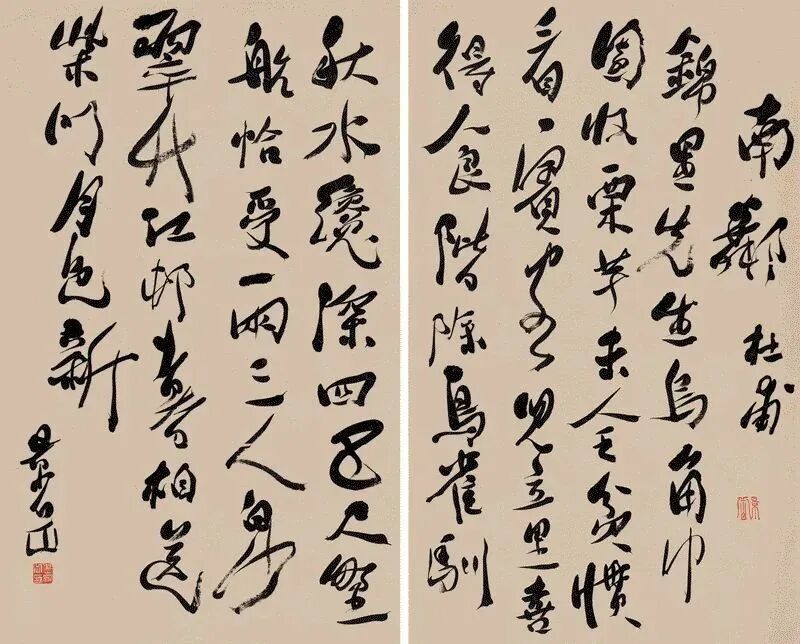 南鄰 杜甫
錦里先生烏角巾
園收栗芋未全貧慣
看賓客兒童喜
得食階除鳥雀馴
秋水纔深四五尺野
航恰受兩三人白沙
翠竹江邨暮相送
柴門月色新